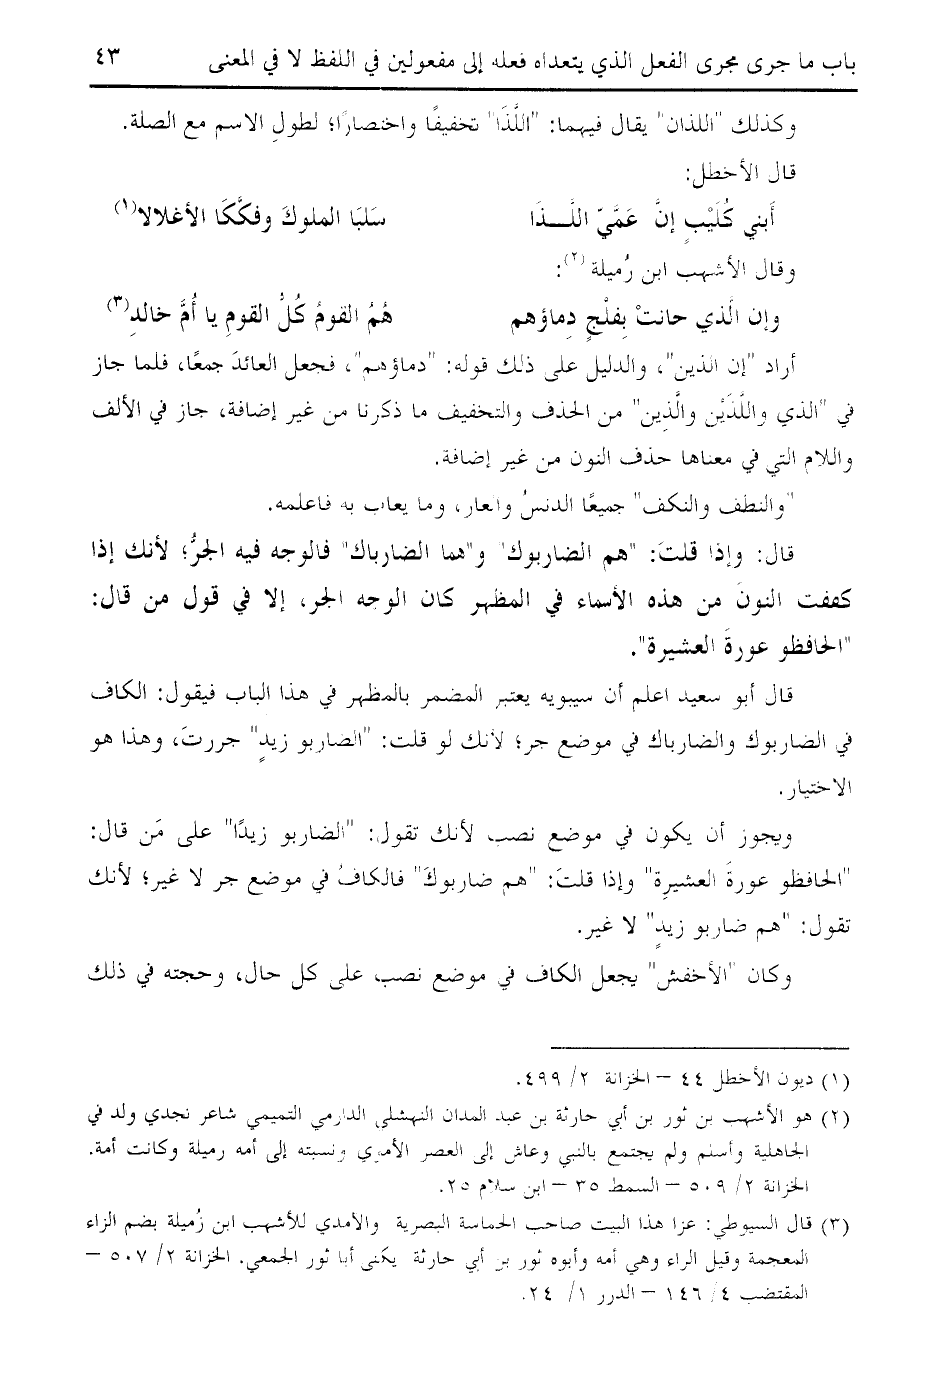 باب ما جرى مجرى الفعل الذي يتعداه فعله إلى مفعولين في اللفظ لا في المعنى ٤٣
وكذلك "اللذان" يقال فيهما: "اللَّذَا" تخفيفًا واختصارًا؛ لطولِ الاسم مع الصلة.
قال الأخطل:
أَبني كُلَيْبٍ إنَّ عَمَّيّ اللَّـــذَا سَلبَا الملوكَ وفكَّكَا الأغلالا(١)
وقال الأشهب ابن رُميلة (٢):
وإن الَّذي حانتْ بِفلْجٍ دِماؤهم هُمُ القومُ كُلُّ القومِ يا أُمَّ خالدِ(٣)
أراد "إن الذين"، والدليل على ذلك قوله: "دماؤهم"، فجعل العائدَ جمعًا، فلما جاز
في "الذي واللَّذَيْن والَّذِين" من الحذف والتخفيف ما ذكرنا من غير إضافة، جاز في الألف
واللام التي في معناها حذف النون من غير إضافة.
"والنطف والنكف" جميعًا الدنسُ والعار، وما يعاب به فاعلمه.
قال: وإذا قلتَ: "هم الضاربوك" و"هما الضارباك" فالوجه فيه الجرُّ؛ لأنك إذا
كففت النونَ من هذه الأسماء في المظهر كان الوجه الجر، إلا في قول من قال:
"الحافظو عورةَ العشيرة".
قال أبو سعيد اعلم أن سيبويه يعتبر المضمر بالمظهر في هذا الباب فيقول: الكاف
في الضاربوك والضارباك في موضع جر؛ لأنك لو قلت: "الضاربو زيدٍ" جررتَ، وهذا هو
الاختيار.
ويجوز أن يكون في موضع نصب لأنك تقول: "الضاربو زيدًا" على مَن قال:
"الحافظو عورةَ العشيرةِ" وإذا قلتَ: "هم ضاربوكَ" فالكافُ في موضع جر لا غير؛ لأنك
تقول: "هم ضاربو زيدٍ" لا غير.
وكان "الأخفش" يجعل الكاف في موضع نصب على كل حال، وحجته في ذلك
(١) ديون الأخطل ٤٤ – الخزانة ٢/ ٤٩٩.
(٢) هو الأشهب بن ثور بن أبي حارثة بن عبد المدان النهشلي الدارمي التميمي شاعر نجدي ولد في
الجاهلية وأسلم ولم يجتمع بالنبي وعاش إلى العصر الأموي ونسبته إلى أمه رميلة وكانت أمة.
الخزانة ٢/ ٥٠٩ – السمط ٣٥ – ابن سلام ٢٥.
(٣) قال السيوطي: عزا هذا البيت صاحب الحماسة البصرية والآمدي للأشهب ابن زُميلة بضم الزاء
المعجمة وقيل الراء وهي أمه وأبوه ثور بن أبي حارثة يكنى أبا ثور الجمعي. الخزانة ٢/ ٥٠٧ –
المقتضب ٤/ ١٤٦ – الدرر ١/ ٢٤.